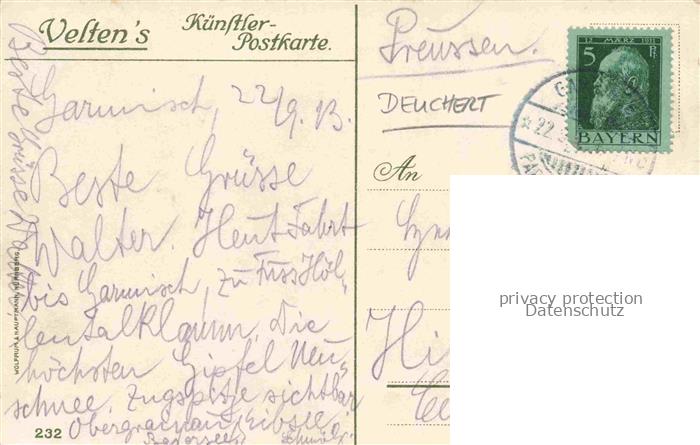 Velten's Künstler-Postkarte.
Garmisch, 22/9. 13.
Beste Grüsse
Walter. Heut Fahrt
bis Garmisch, zu Fuss Höl-
lentalklamm. Die
höchsten Gipfel Neu-
schnee. Zugspitze sichtbar
Obergrainau, Eibsee,
Badersee
232
Beste Grüsse
WOLFRUM & HAUPTMANN, NÜRNBERG
Preussen.
DEUCHERT
An
12. MÄRZ 1911
5 Pf.
BAYERN
privacy protection
Datenschutz